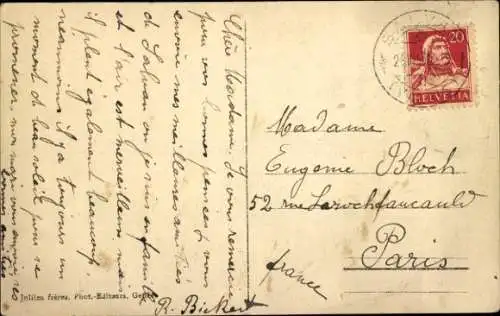 Chère Madame. Je vous remercie
pour vos bonnes pensées et vous
envoie mes meilleures amitiés
de Salvan où je suis en famille
et l'air est merveilleux mais
il pleut également beaucoup,
néanmoins il y a toujours un
moment de beau soleil pour se
promener, mon mari vous envoie ses
R. Bickert
Jullien frères, Phot.-Editeurs, Genève
20
HELVETIA
Madame
Eugenie Bloch
52 rue Larochfaucauld
Paris
france